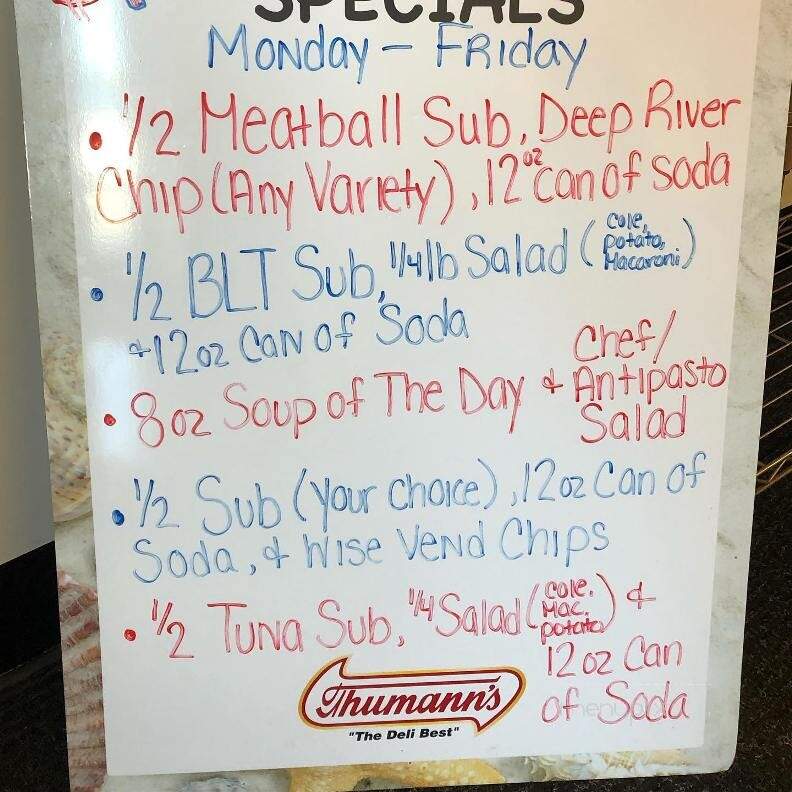 SPECIALS
Monday - Friday
• 1/2 Meatball Sub, Deep River
Chip (Any Variety), 12oz can of soda
• 1/2 BLT Sub, 1/4lb Salad (cole, potato, Macaroni)
+ 12oz Can of Soda
• 8oz Soup of The Day + Chef/
Antipasto
Salad
• 1/2 Sub (Your Choice), 12oz Can of
Soda, + Wise Vend Chips
• 1/2 Tuna Sub, 1/4 Salad (cole. Mac. potato) +
12oz Can
of Soda
Thumann's
"The Deli Best"